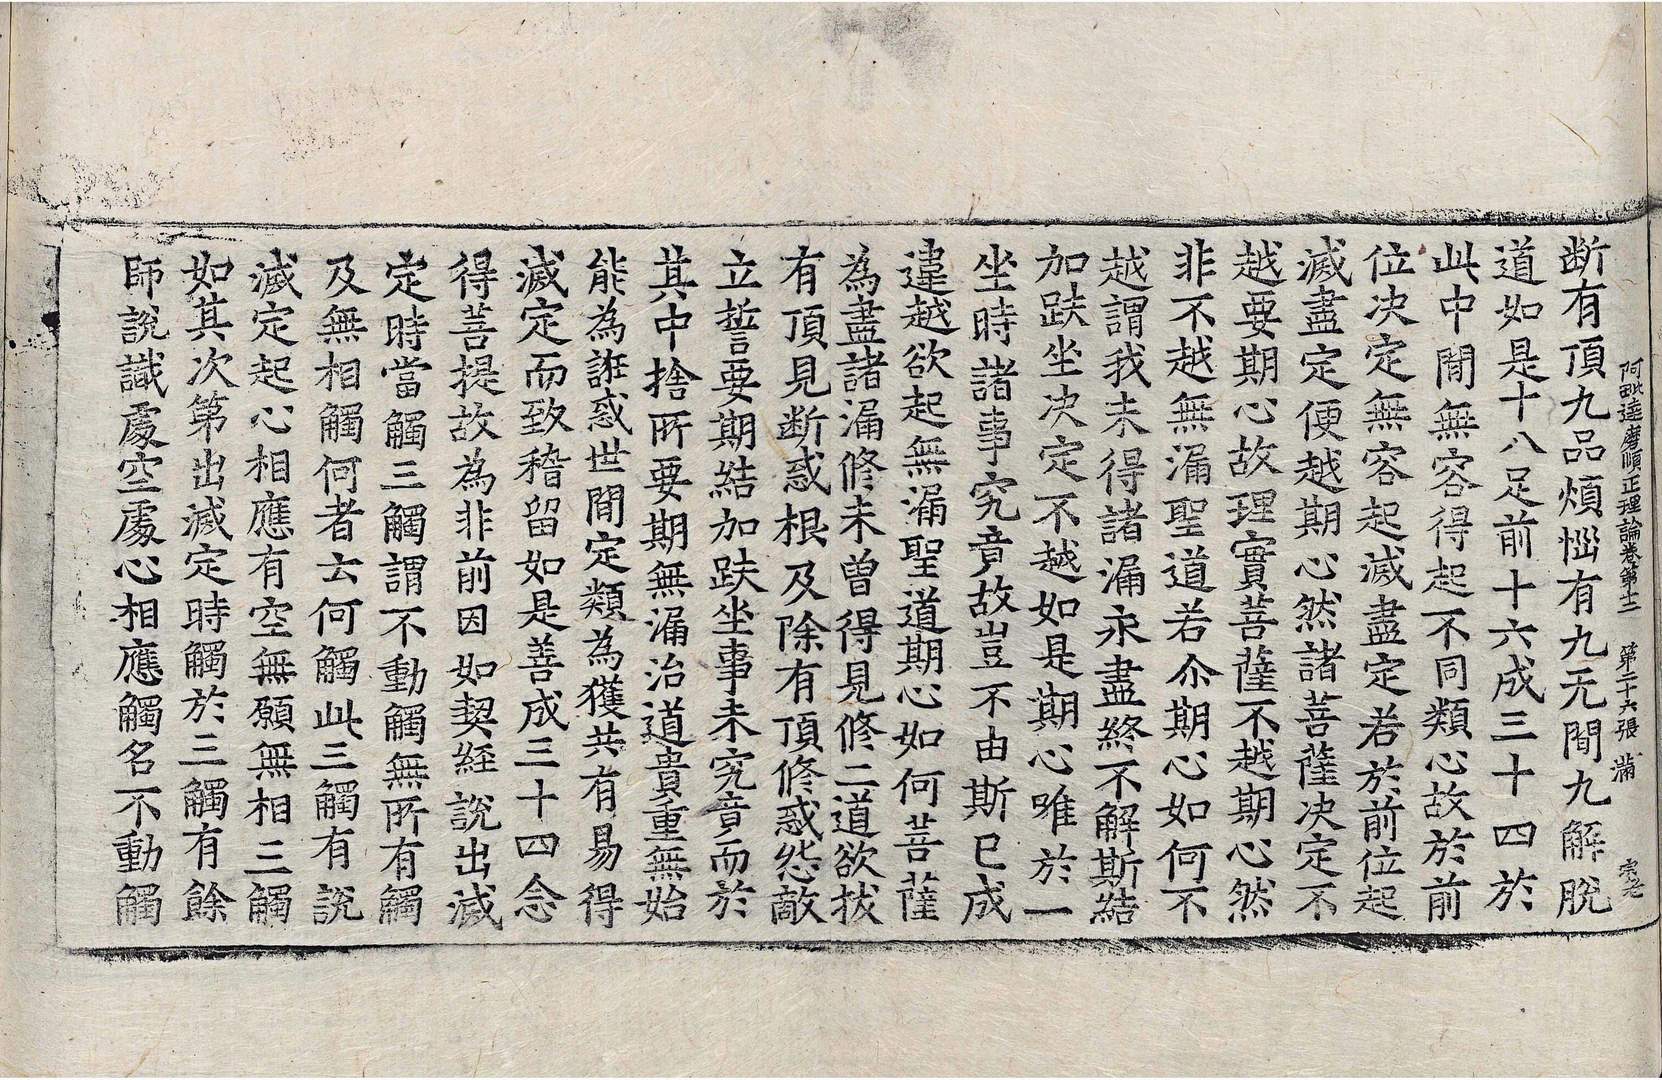 阿毗達磨順正理論卷第十二 第二十六張 滿
断有頂九品煩惱有九无間九解脫
道如是十八足前十六成三十四於
此中間無容得起不同類心故於前
位决定無容起滅盡定若於前位起
滅盡定便越期心然諸菩薩决定不
越要期心故理實菩薩不越期心然
非不越無漏聖道若尒期心如何不
越謂我未得諸漏永盡終不解斯結
加趺坐决定不越如是期心唯於一
坐時諸事究竟故豈不由斯已成
違越欲起無漏聖道期心如何菩薩
為盡諸漏修未曾得見修二道欲拔
有頂見断惑根及除有頂修惑怨敵
立誓要期結加趺坐事未究竟而於
其中捨所要期無漏治道貴重無始
能為誑惑世間定類為獲共有易得
滅定而致稽留如是善成三十四念
得菩提故為非前因如契經說出滅
定時當觸三觸謂不動觸無所有觸
及無相觸何者云何觸此三觸有說
滅定起心相應有空無願無相三觸
如其次第出滅定時觸於三觸有餘
師說識處空處心相應觸名不動觸